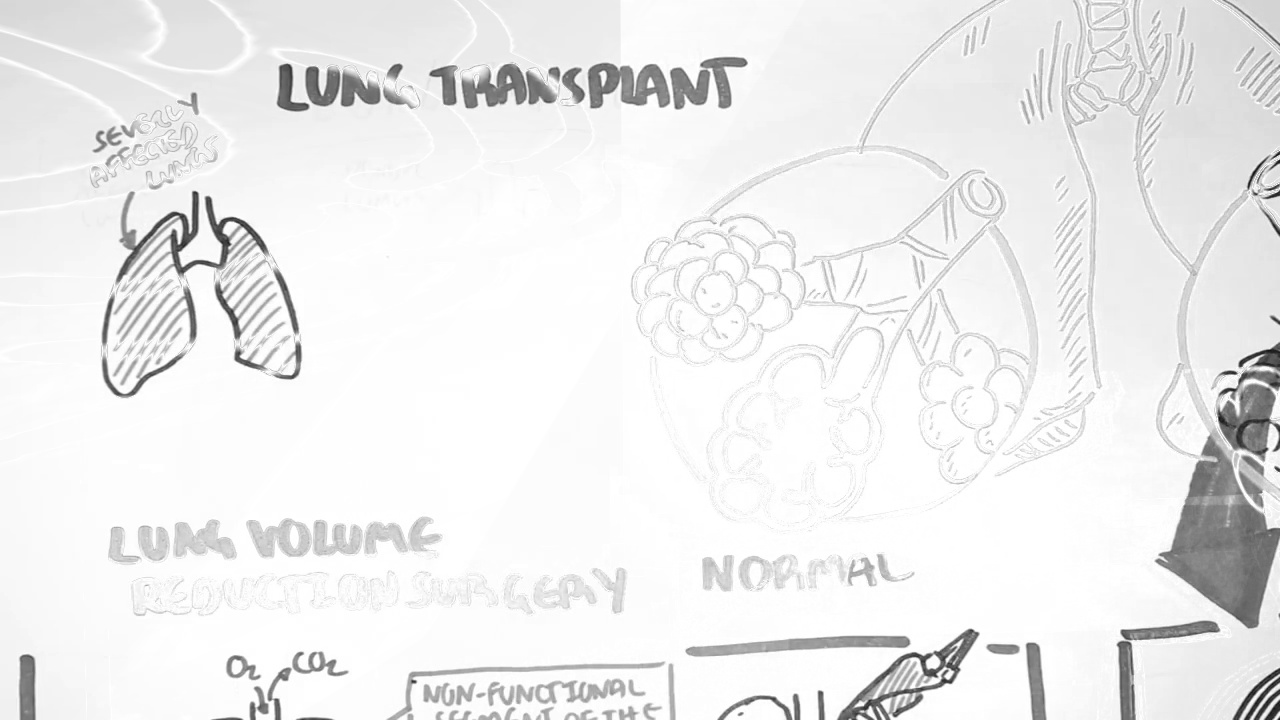 LUNG TRANSPLANT
SEVERELY
AFFECTED
LUNGS
LUNG VOLUME
REDUCTION SURGERY
NORMAL
O2
CO2
NON-FUNCTIONAL
SEGMENT OF THE